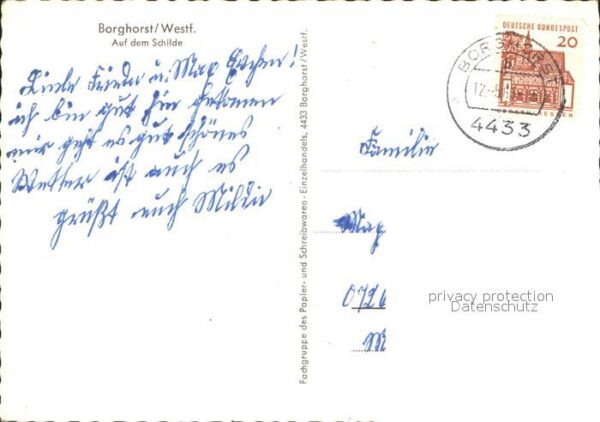 Borghorst/Westf.
Auf dem Schilde
Liebe Frieda u. Max
ich bin gut hier gekomen
mir geht es gut schönes
Wetter ist auch es
grüßt euch
Fachgruppe des Papier- und Schreibwaren-Einzelhandels, 4433 Borghorst/Westf.
DEUTSCHE BUNDESPOST
20
BORGHORST
4433
Familie
Max
privacy protection
Datenschutz